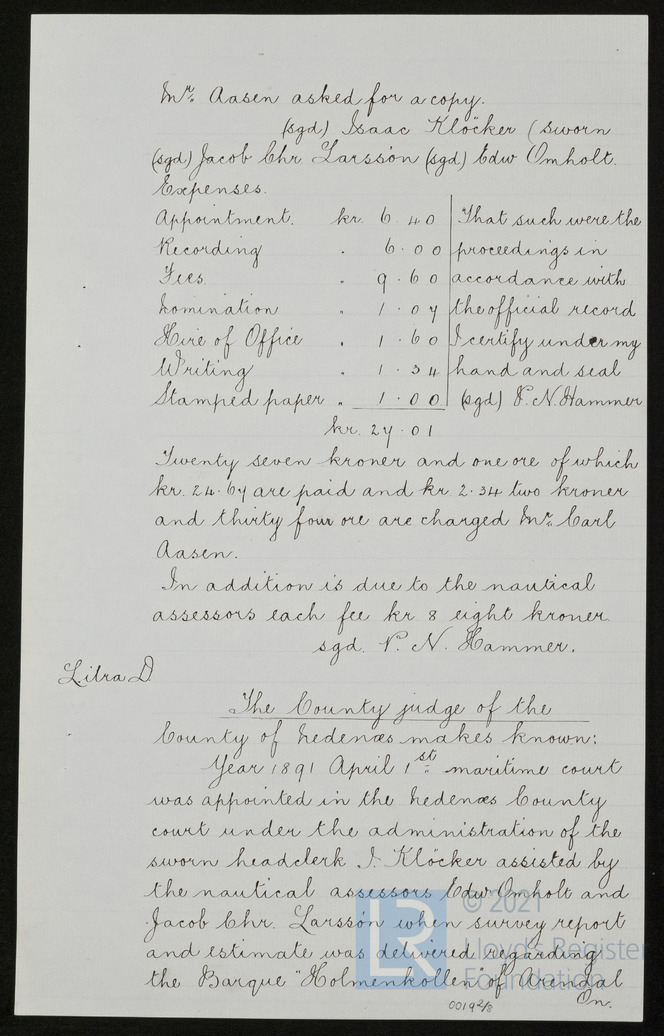 Mr. Aasen asked for a copy.
(sgd) Isaac Klöcker (sworn
(sgd) Jacob Chr Larsson (sgd) Edw Omholt.
Expenses.
Appointment. kr. 6.40 That such were the
Recording . 6.00 proceedings in
Fees . 9.60 accordance with
Nomination . 1.07 the official record
Hire of Office . 1.60 I certify under my
Writing . 1.34 hand and seal
Stamped paper . 1.00 (sgd) P. N. Hammer
kr. 27.01
Twenty seven kroner and one ore of which
kr. 24.67 are paid and kr 2.34 two kroner
and thirty four ore are charged Mr. Carl
Aasen.
In addition is due to the nautical
assessors each fee kr 8 eight kroner.
sgd. P. N. Hammer.
Litra D.
The County judge of the
County of Nedenæs makes known:
Year 1891 April 1st maritime court
was appointed in the Nedenæs County
court under the administration of the
sworn headclerk I. Klöcker assisted by
the nautical assessors Edw Omholt and
Jacob Chr. Larsson when survey report
and estimate was delivered regarding
the Barque "Holmenkollen" of Arendal
On.
0019 2/3
© 2021
Lloyd's Register
Foundation
LR